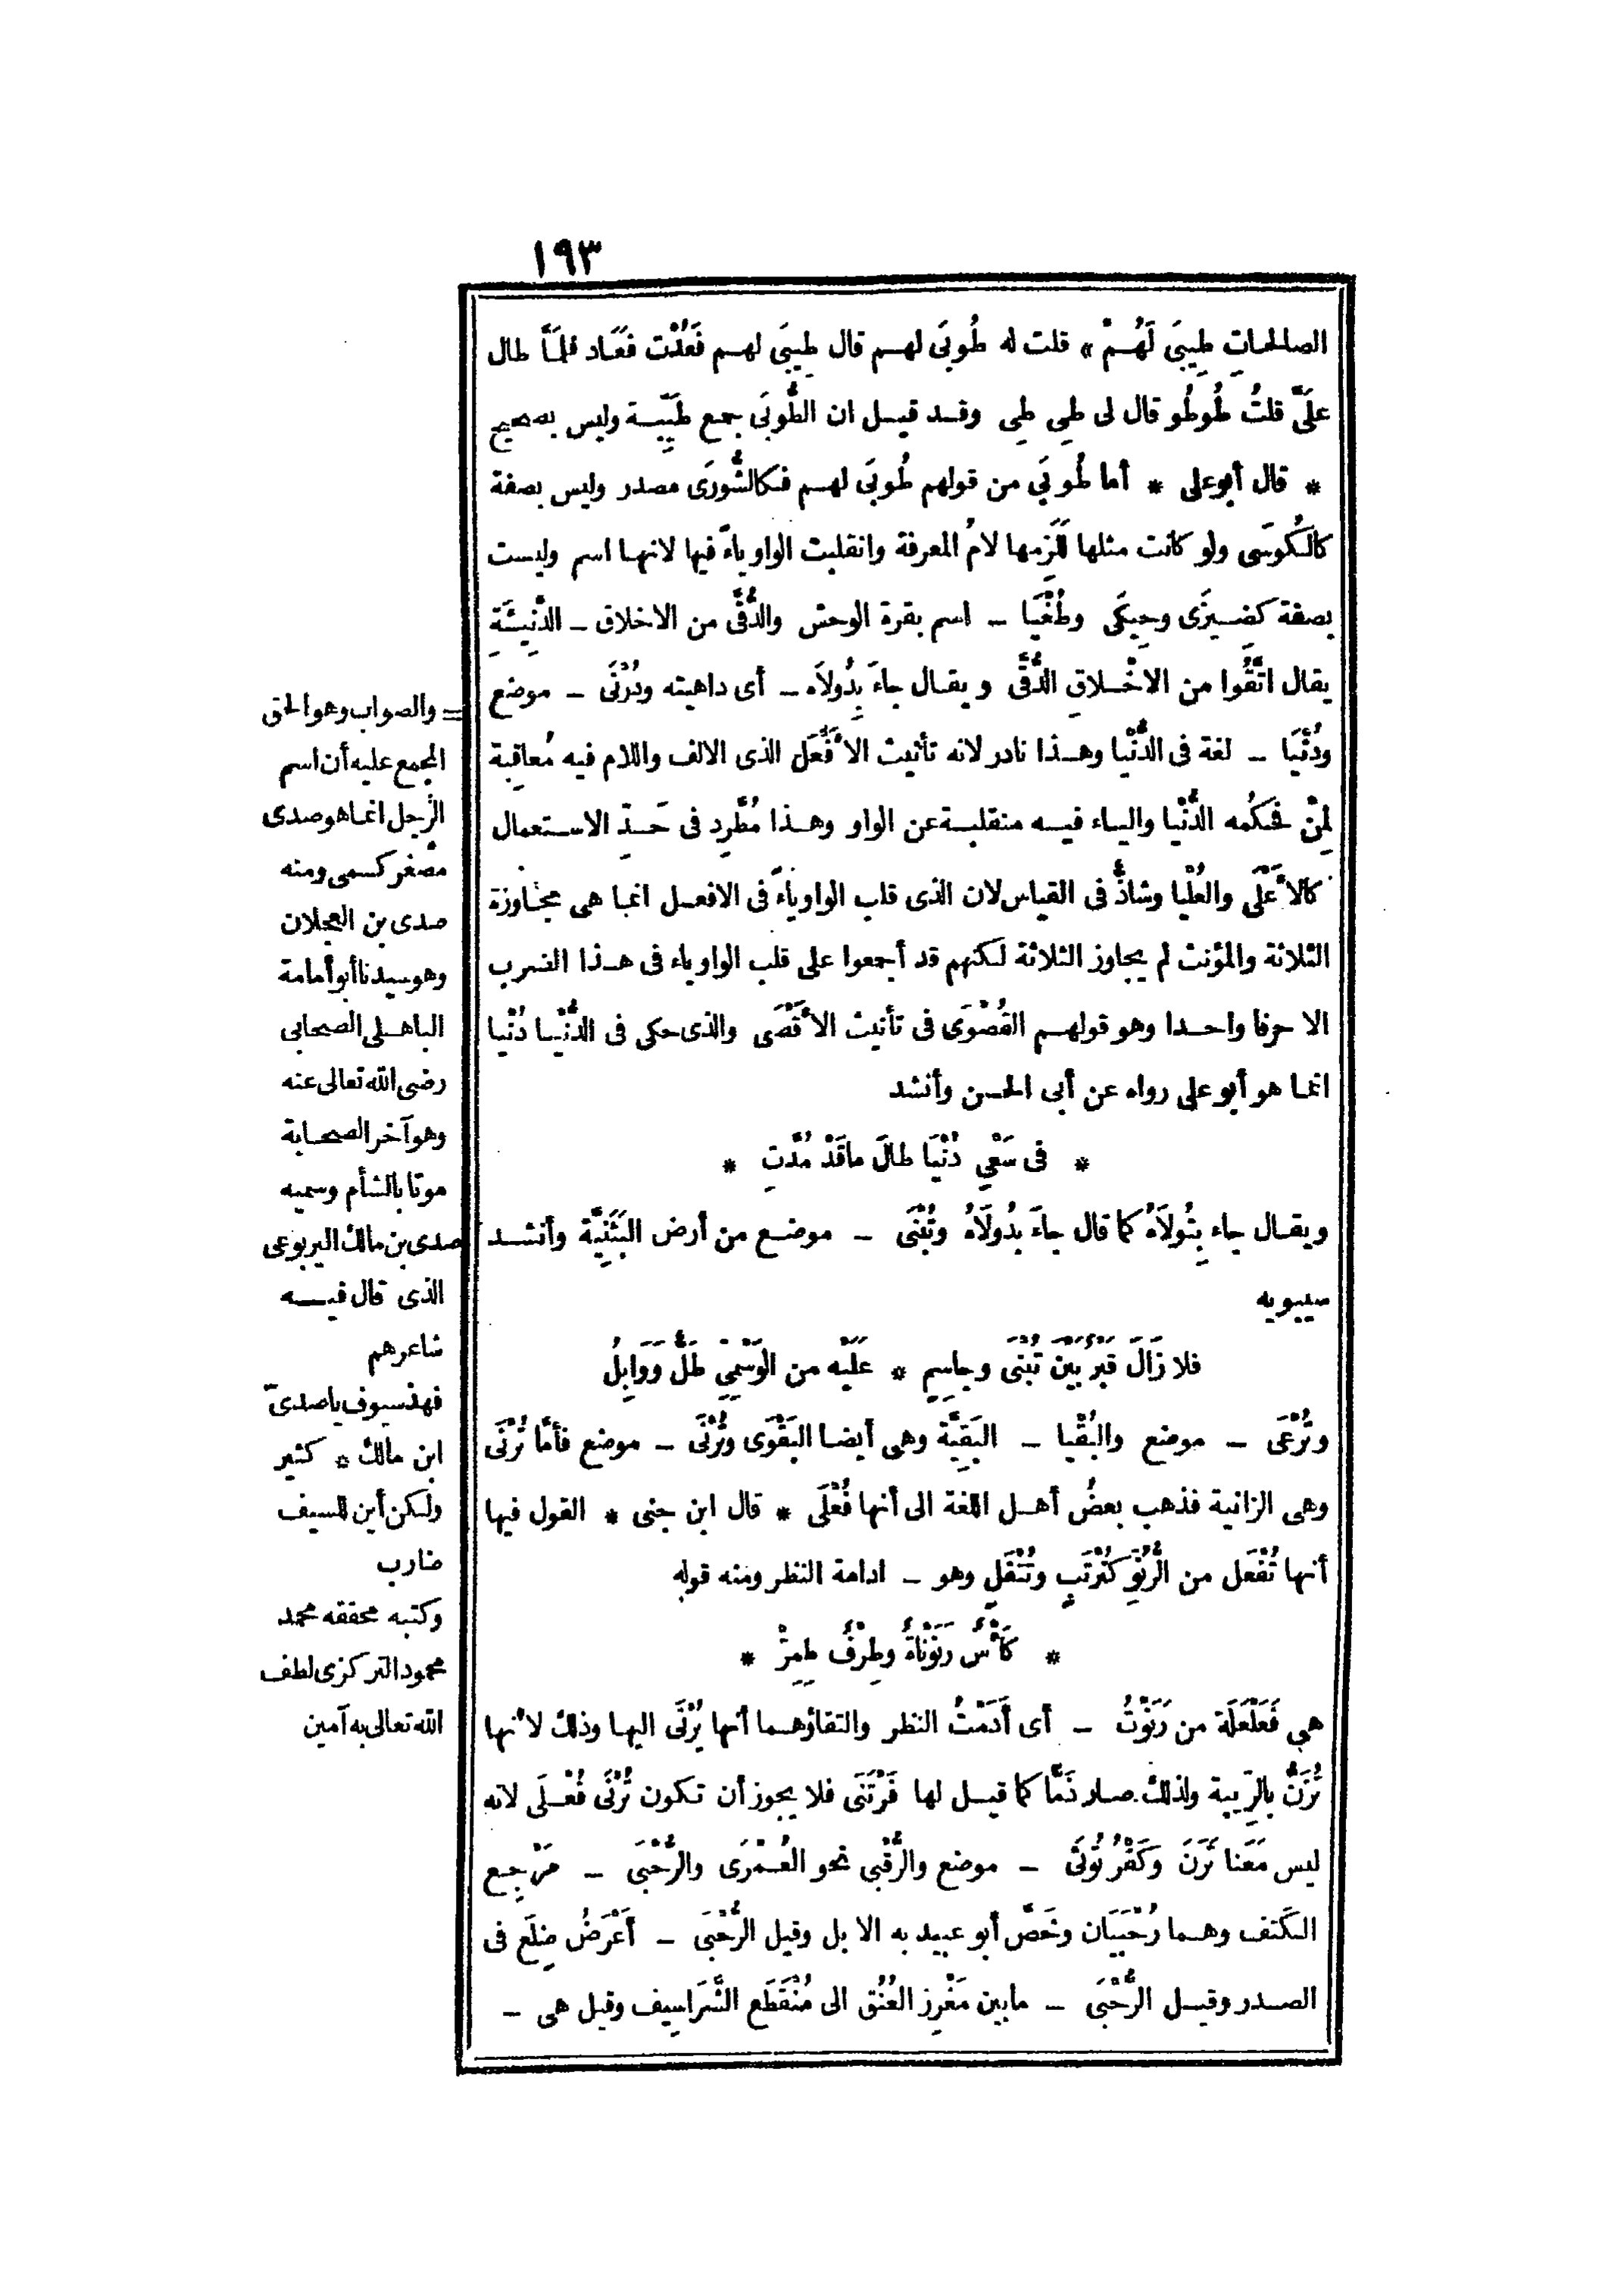 ١٩٣
الصالحاتِ طِيبَى لَهُمْ» قلت له طُوبَى لهم قال طِيبَى لهم فَعُدْت فَعَاد فلَمَّا طال
علَىَّ قلتُ طُوطُو قال لى طِى طِى وقد قيل ان الطُّوبَى جمع طَيِّبة وليس بصحيح
* قال أبو على * أما طُوبَى من قولهم طُوبَى لهم فكالشُّورَى مصدر وليس بصفة
كالكُوسَى ولو كانت مثلها لَلَزِمها لامُ المعرفة وانقلبت الواو ياءً فيها لانها اسم وليست
بصفة كضِيزَى وحِيكَى وطُغْيَا ـ اسم بقرة الوحش والدُّقَّى من الاخلاق ـ الدَّنِيئَةِ
يقال اتَّقُوا من الاخْلاقِ الدُّقَّى ويقال جاءَ بِدُولَاه ـ أى داهيته ودُرْنَى ـ موضع
ودُنْيَا ـ لغة فى الدُّنْيا وهذا نادر لانه تأنيث الأَفْعَل الذى الالف واللام فيه مُعاقِبة
لِمِنْ فحكمه الدُّنْيا والياء فيه منقلبة عن الواو وهذا مُطَّرِد فى حَدِّ الاستعمال
كالأَعْلَى والعُلْيا وشاذٌّ فى القياس لان الذى قلب الواو ياءً فى الافعل انما هى مجاوزة
الثلاثة والمؤنث لم يجاوز الثلاثة لكنهم قد أجمعوا على قلب الواو ياء فى هذا الضرب
الا حرفا واحدا وهو قولهم القُصْوَى فى تأنيث الأَقْصَى والذى حكى فى الدُّنْيا دُنْيا
انما هو أبو على رواه عن أبى الحسن وأنشد
* فى سَعْىِ دُنْيَا طالَ ماقَدْ مُدَّتِ *
ويقال جاء بِتُولَاهُ كما قال جاءَ بِدُولَاهُ وتُبْنَى ـ موضع من أرض البَثَنِيَّة وأنشد
سيبويه
فلا زَالَ قَبْرٌ بَيْنَ تُبْنَى وجاسِمٍ * عَلَيْه من الوَسْمِىِّ طَلٌّ وَوَابِلُ
وتُرْعَى ـ موضع والبُقْيا ـ البَقِيَّة وهى أيضا البَقْوَى وتُرْنَى ـ موضع فأمَّا تُرْنَى
وهى الزانية فذهب بعضُ أهل اللغة الى أنها فُعْلَى * قال ابن جنى * القول فيها
أنها تُفْعَل من الرُّنُوِّ كتُرْتَبٍ وتُتْفَلٍ وهو ـ ادامة النظر ومنه قوله
* كَأْسٌ رَنَوْنَاةٌ وطِرْفٌ طِمِرّْ *
هى فَعَلْعَلَة من رَنَوْتُ ـ أى أَدَمْتُ النظر والتقاؤهما أنها يُرْنَى اليها وذلك لأنها
تُزَنُّ بالرِّيبة ولذلك صار ذَمًّا كما قيل لها فَرْتَنَى فلا يجوز أن تكون تُرْنَى فُعْلَى لانه
ليس مَعَنا تَرَنَ وكَفْرُ تُوثَى ـ موضع والرُّقْبى نحو العُمْرَى والرُّحْبَى ـ مَرْجِع
الكَتف وهما رُحْبَيَان وخَصَّ أبو عبيد به الابل وقيل الرُّحْبَى ـ أَعْرَضُ ضِلَع فى
الصدر وقيل الرُّحْبَى ـ مابين مَغْرِز العُنُق الى مُنْقَطَع الشَّرَاسِيف وقيل هى ـ
= والصواب وهو الحق
المجمع عليه أن اسم
الرجل انما هو صدى
مصغر كسمى ومنه
صدى بن العجلان
وهو سيدنا أبو أمامة
الباهلى الصحابى
رضى الله تعالى عنه
وهو آخر الصحابة
موتا بالشأم وسميه
صدى بن مالك اليربوعى
الذى قال فيه
شاعرهم
فهذ سيوف ياصدىّ
ابن مالك * كثير
ولكن أين للسيف
ضارب
وكتبه محققه محمد
محمود التركزى لطف
الله تعالى به آمين